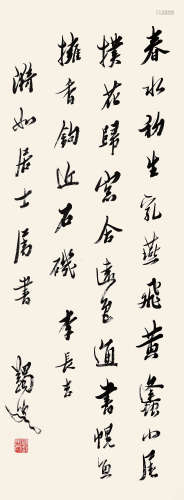 春水初生乳燕飛黃蜂小尾
撲花歸窗含遠色通書幌魚
擁香鉤近石磯 李長吉
漪如居士屬書